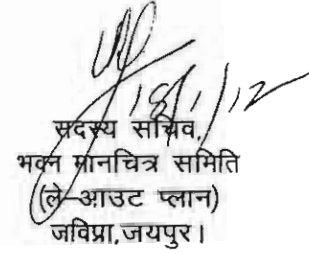 18/1/12
सदस्य सचिव,
भवन मानचित्र समिति
(ले-आउट प्लान)
जविप्रा,जयपुर।